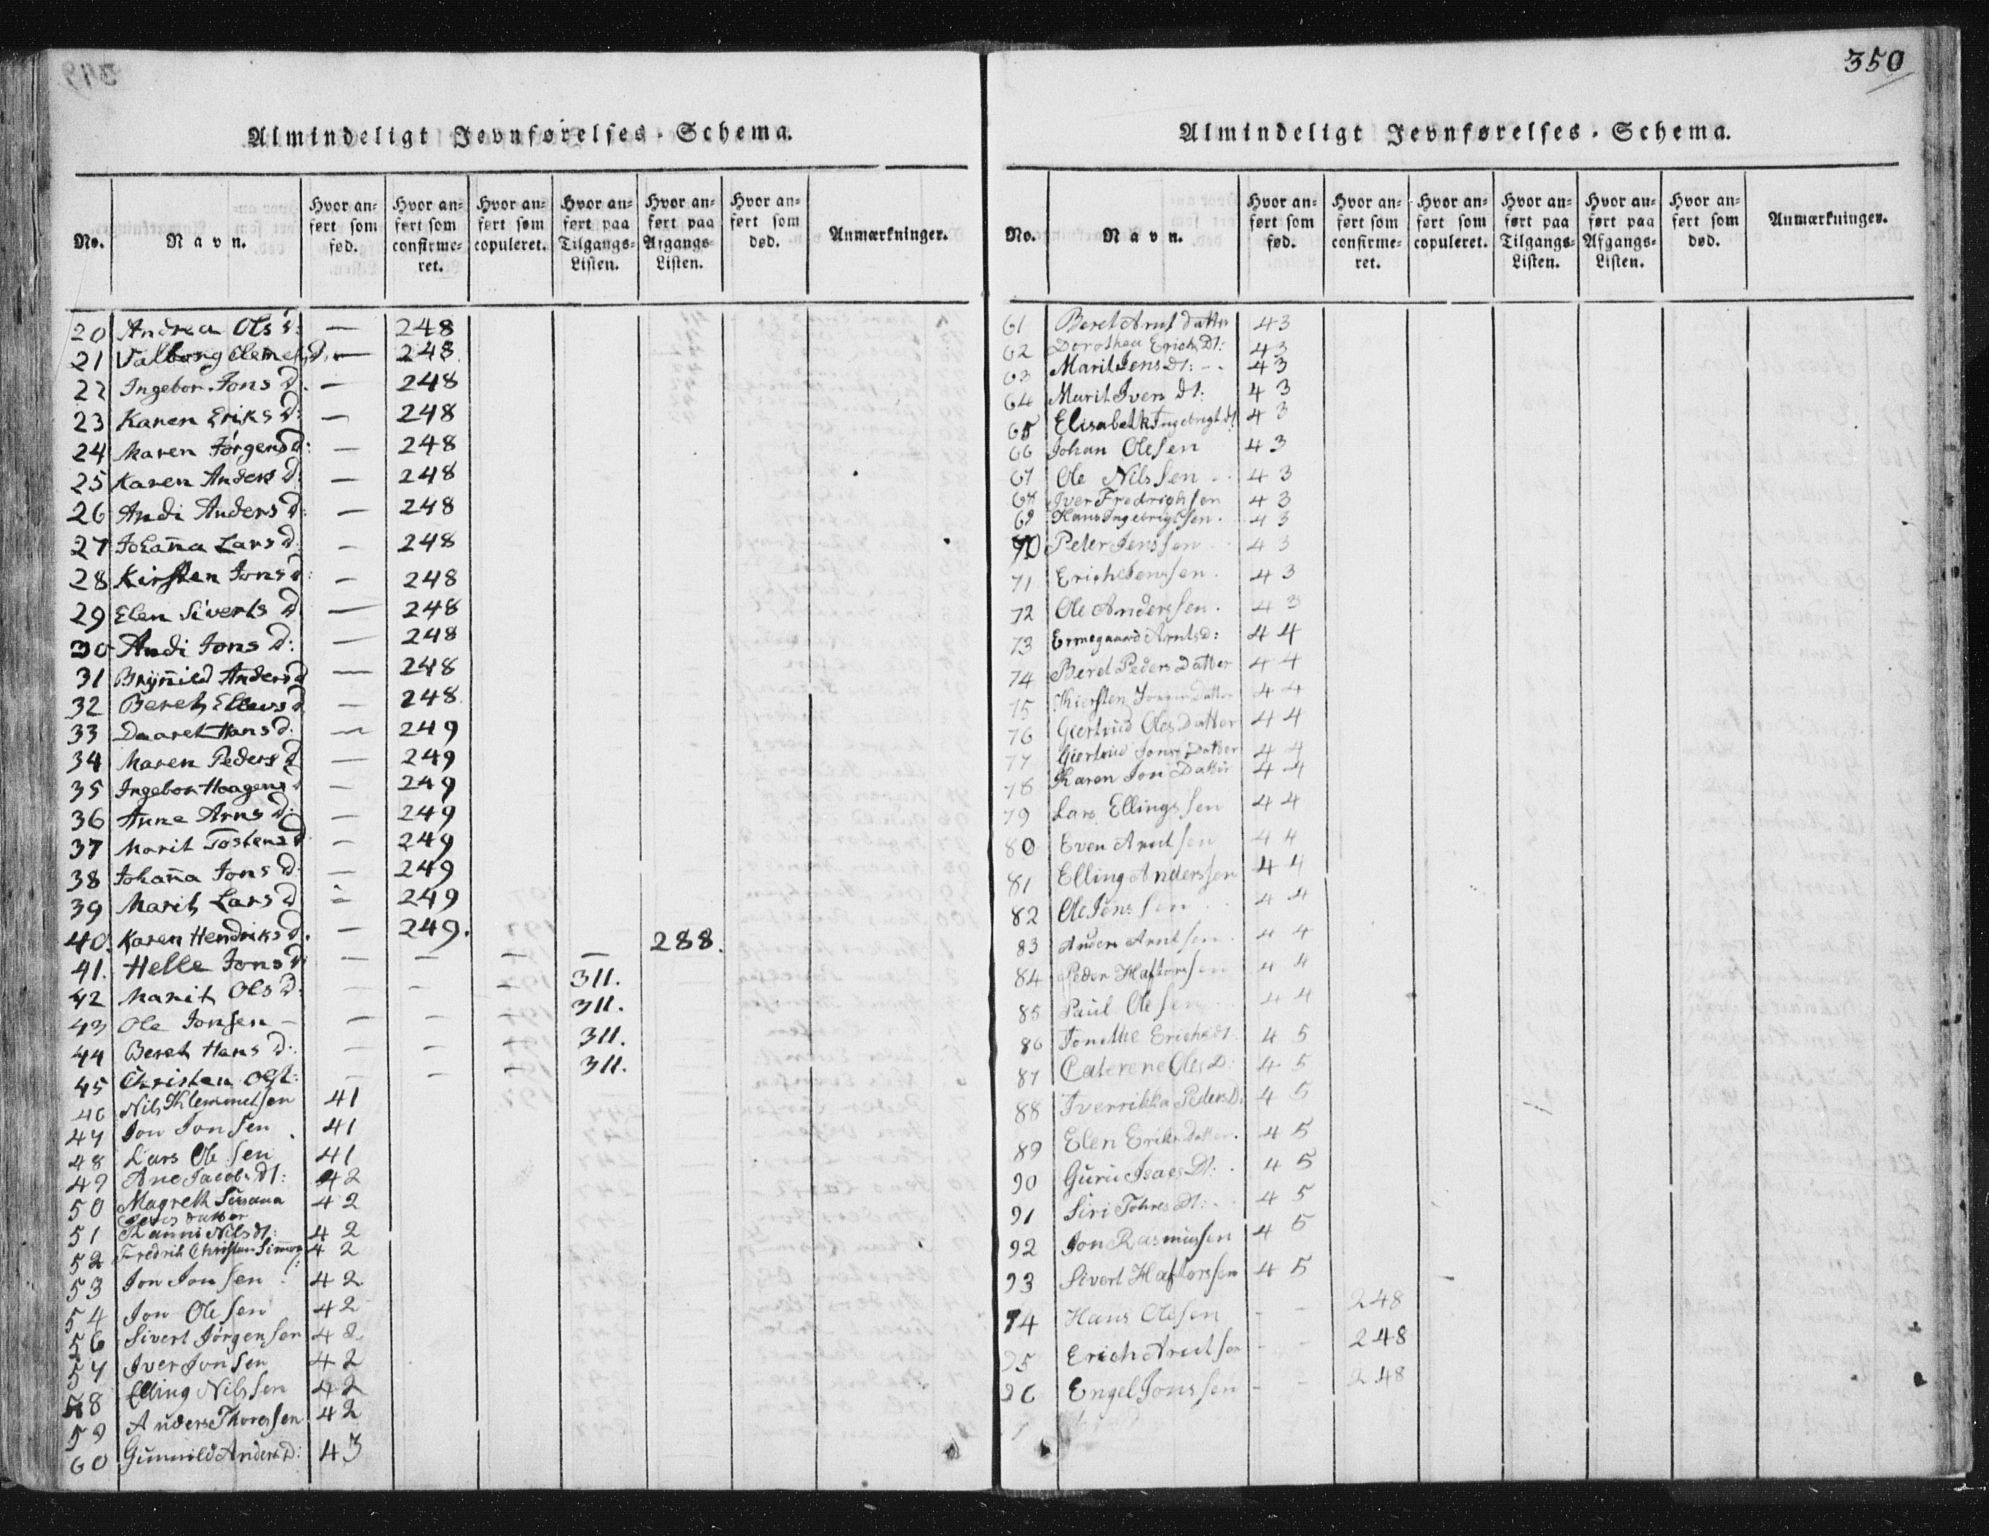 350
Almindeligt Jevnførelses-Schema.
No. Navn. Hvor anført som fød. Hvor anført som confirmeret. Hvor anført som copuleret. Hvor anført paa Tilgangs-Listen. Hvor anført paa Afgangs-Listen. Hvor anført som død. Anmærkninger.
20 Andrea Ols d: — 248
21 Valborg Clemets D. — 248.
22 Ingebor Jons d. — 248
23 Karen Eriks d: — 248
24 Maren Jørgens d: — 248
25 Karen Anders d: — 248
26 Andi Anders d: — 248
27 Johan̄a Lars d. — 248
28 Kirsten Jons d: — 248
29 Elen Siverts d — 248
30 Andi Jons d: — 248
31 Bryn̄ild Anders d — 248
32 Beret Ellevs d — 248
33 Daaret Hans d: — 249
34 Maren Peders d — 249
35 Ingebor Haagens d — 249
36 Anne Arns d: — 249
37 Marit Tostens d — 249
38 Johan̄a Jons d — 249
39 Marit Lars d — 249
40. Karen Hendriks d. — 249. — — 288.
41. Helle Jons d — — — 311.
42 Marit Ols d: — — — 311.
43 Ole Jonsen — — — — 311.
44 Beret Hans d: — — — 311.
45 Christen Ols: — — —
46 Nils Klemmetsen 41
47 Jon Jonsen 41
48 Lars Olesen 41
49 Ane Jacobs dt: 42
50 Magreth Susana 42
Peders datter
51 Nils dt: 42
52 Fredrik Christen Simon 42
53 Jon Jonsen 42
54 Jon Olesen 42
56 Sivert Jørgensen 42
57 Iver Jonsen 42
58 Elling Nilssen 42
59 Anders Thoressen 42
60 Gunnild Anders D: 43
Almindeligt Jevnførelses-Schema.
No. Navn. Hvor anført som fød. Hvor anført som confirmeret. Hvor anført som copuleret. Hvor anført paa Tilgangs-Listen. Hvor anført paa Afgangs-Listen. Hvor anført som død. Anmærkninger.
61 Beret Arnt datter 43
62 Dorothea Erichs Dt: 43
63 Marit Jens dt: 43
64 Marit Ivers dt: 43
65 Elisabeth Ingebrigt dt 43
66 Johan Olesen 43
67 Ole Nilssen 43
68 Iver Fredrichsen 43
69 Hans Ingebrigtsen. 43
70 Peter Jenssen 43
71 Erich Jenssen. 43
72 Ole Anderssen. 43
73 Ermegaard Arnts d: 44
74 Beret Peders Datter 44
75 Kiersten Datter 44
76 Giertrud Oles Datter 44
77 Giertrud Jons Datter 44
78 Karen Jon Datter 44
79 Lars Ellingssen 44
80 Even Arntsen 44
81 Elling Anderssen 44
82 Ole Jenssen 44
83 Anders Arntsen 44
84 Peder Haftorsen 44
85 Paul Olesen 44
86 Jonelle Erichs dt 45
87 Caterene Oles D: 45
88 Iverrikka Peders D: 45
89 Elen Eriks datter. 45
90 Guru Isacs Dt: 45
91 Siri Tohres Dt: 45
92 Jon Rasmussen 45
93 Sivert Haftorssen 45
94 Hans Olesen - - 248
95 Erich Arntsen - - 248
96 Engel Jonssen - - 248